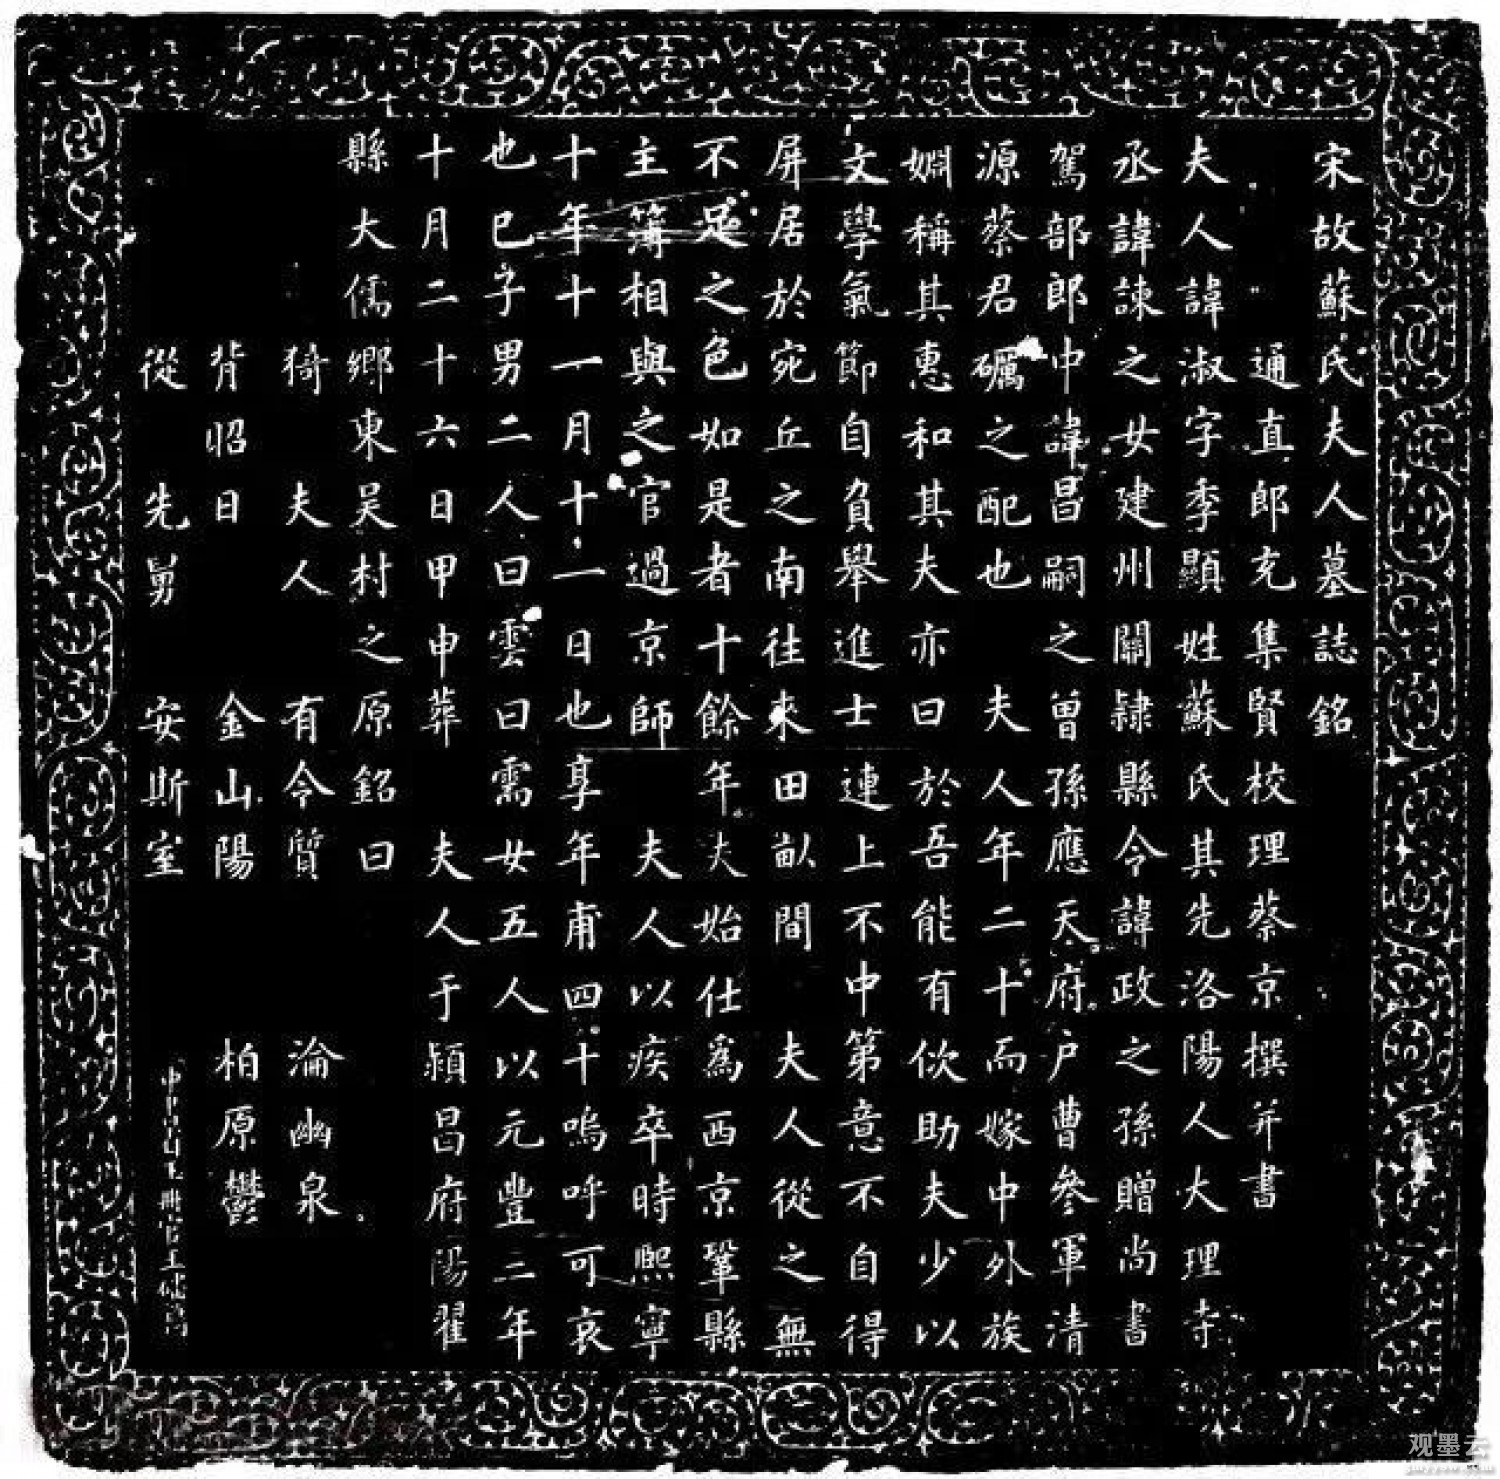 宋故蘇氏夫人墓誌銘
通直郎充集賢校理蔡京撰并書
夫人諱淑字季顯姓蘇氏其先洛陽人大理寺
丞諱諫之女建州關隸縣令諱政之孫贈尚書
駕部郎中諱昌嗣之曾孫應天府户曹參軍清
源蔡君礪之配也 夫人年二十而嫁中外族
姻稱其惠和其夫亦曰於吾能有佽助夫少以
文學氣節自負舉進士連上不中第意不自得
屏居於宛丘之南往來田畝間 夫人從之無
不足之色如是者十餘年夫始仕爲西京鞏縣
主簿相與之官過京師 夫人以疾卒時熙寧
十年十一月十一日也享年甫四十嗚呼可哀
也已子男二人曰雲曰需女五人以元豐二年
十月二十六日甲申葬 夫人于潁昌府陽翟
縣大儒鄉東吴村之原銘曰
猗夫人 有令質 淪幽泉
背昭日 金山陽 柏原鬱
從先舅 安斯室
观墨云